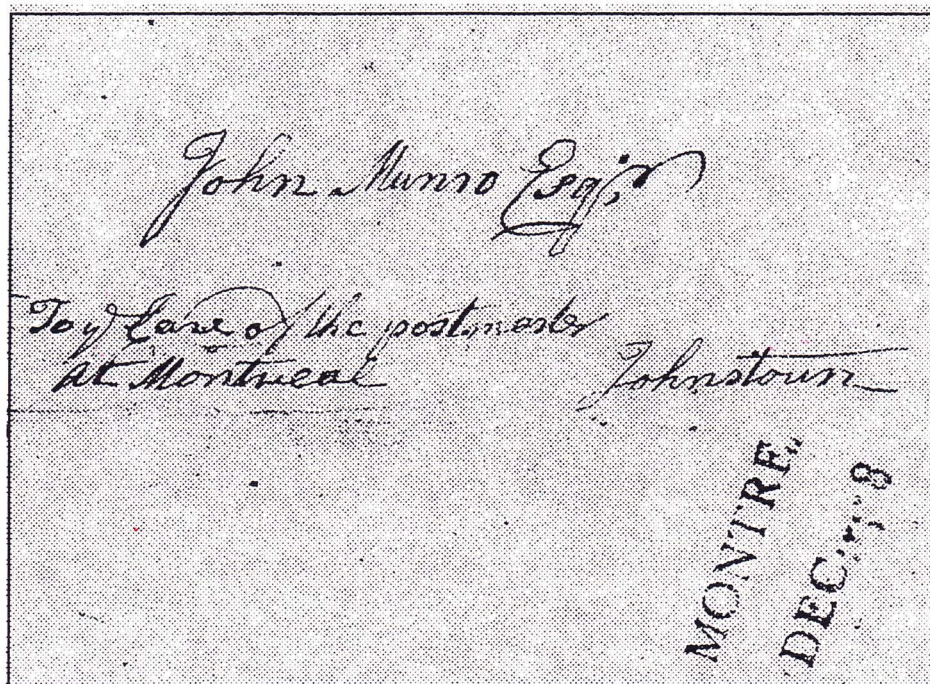 John Munro Esq;r
To ye Care of the postmaster
at Montreal
Johnstown
MONTRE
DEC 8